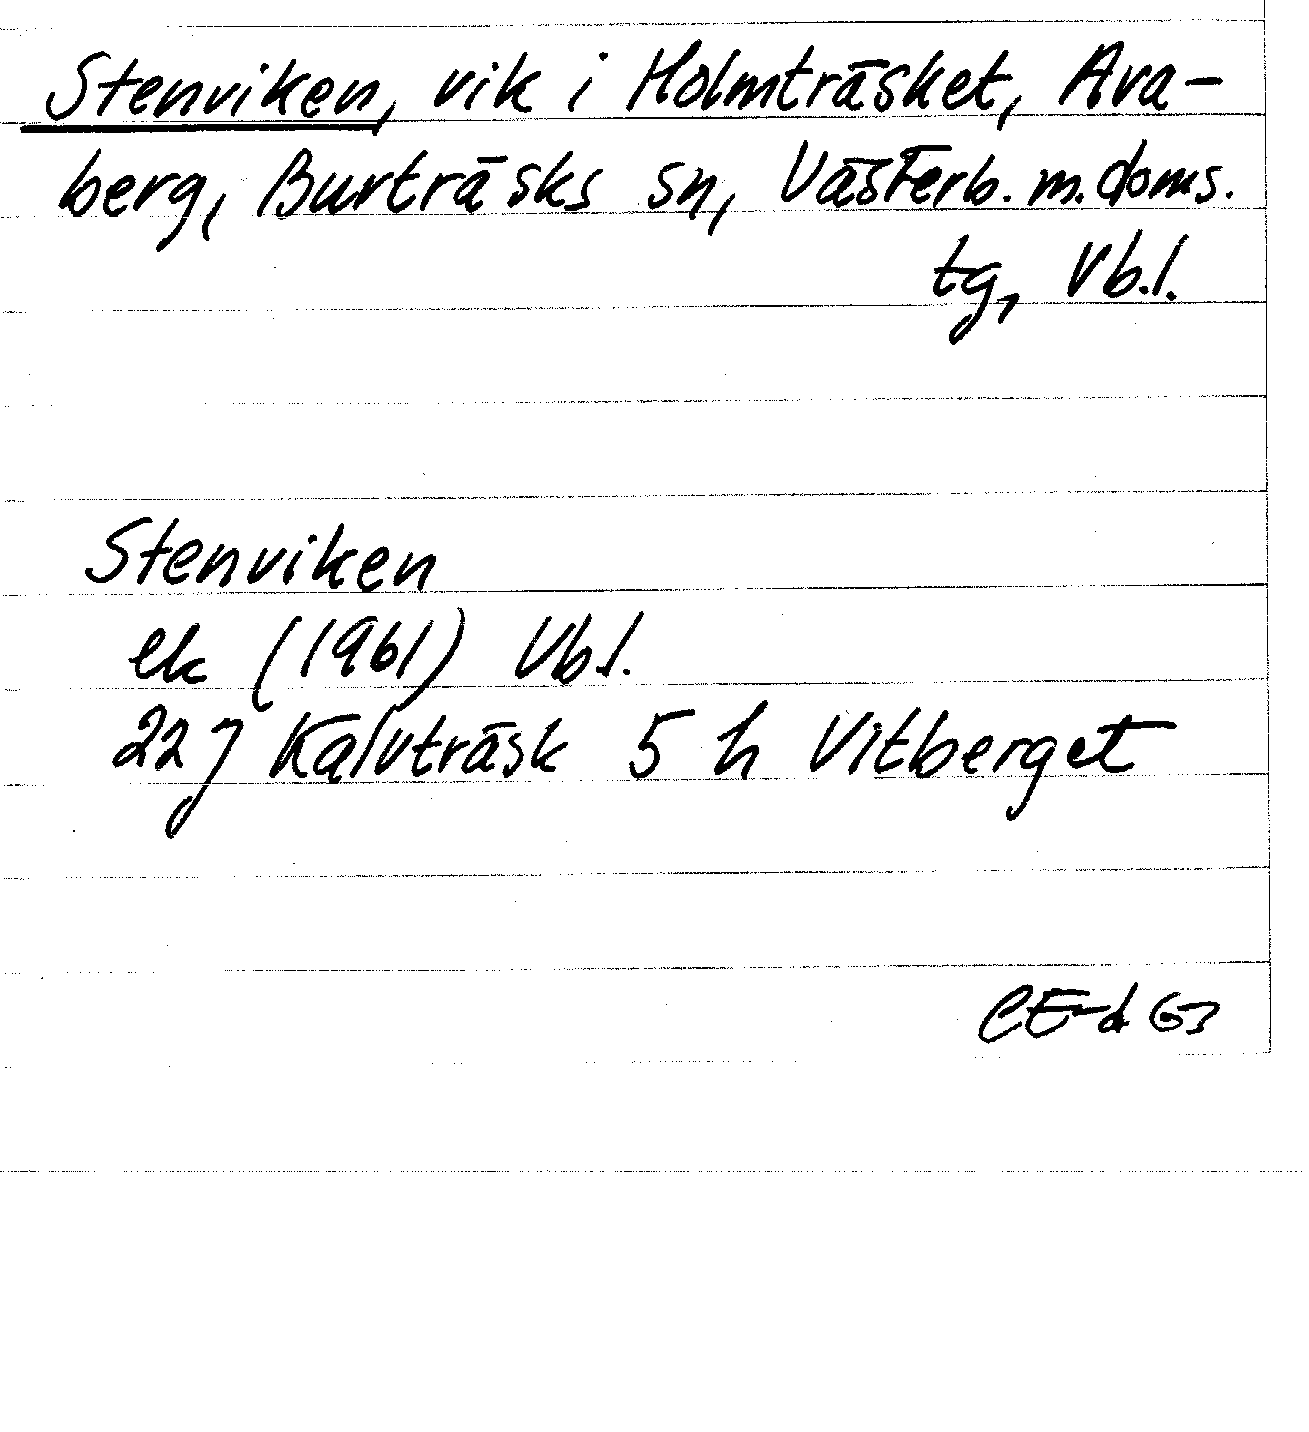 Stenviken, vik i Holmträsket, Ava-
berg, Burträsks sn, Västerb. m. doms.
tg, Vb.l.
Stenviken
ek (1961) Vb.l.
22 J Kalvträsk 5 h Vitberget
CE-d 63